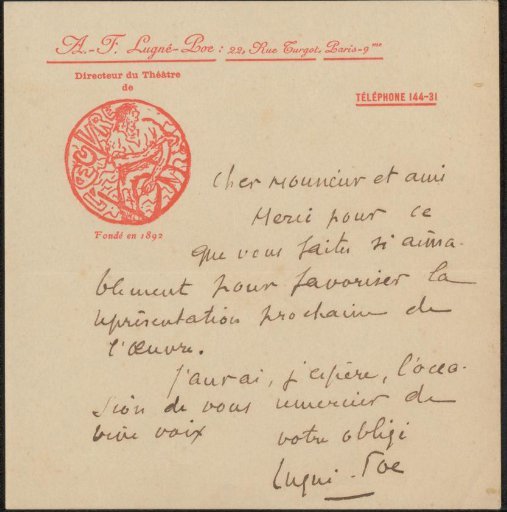 A.-F. Lugné-Poe : 22, Rue Turgot, Paris-9me
Directeur du Théâtre
de
L'ŒUVRE
Fondé en 1892
TÉLÉPHONE 144-31
Cher Monsieur et ami
Merci pour ce
que vous faites si aima-
blement pour favoriser la
représentation prochaine de
l'Œuvre.
J'aurai, j'espère, l'occa-
sion de vous remercier de
vive voix
votre obligé
Lugné-Poe